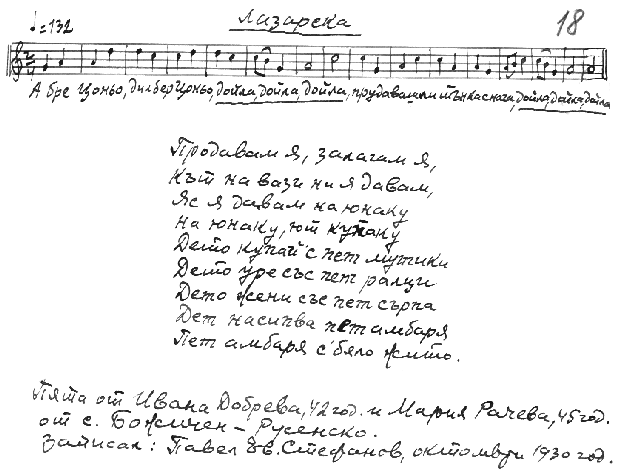 Лазарска
18
♩=132
А бре Цоньо, дилбер Цоньо, дойла, дойла, дойла, прудаваш ли тънка снага, дойла, дойла, дойла
Продавам я, залагам я,
Кът на вази ни я давам,
Яс я давам на юнаку
На юнаку, ют купаку
Дето купай с пет мутики
Дето уре със пет ралци
Дето жени със пет сърпа
Дет насипва пет амбаря
Пет амбаря с'бяло жито.
Пята от Ивана Добрева, 42 год. и Мария Рачева, 45 год.
от с. Божичен - Русенско.
Записал: Павел Ив. Стефанов, октомври 1930 год.